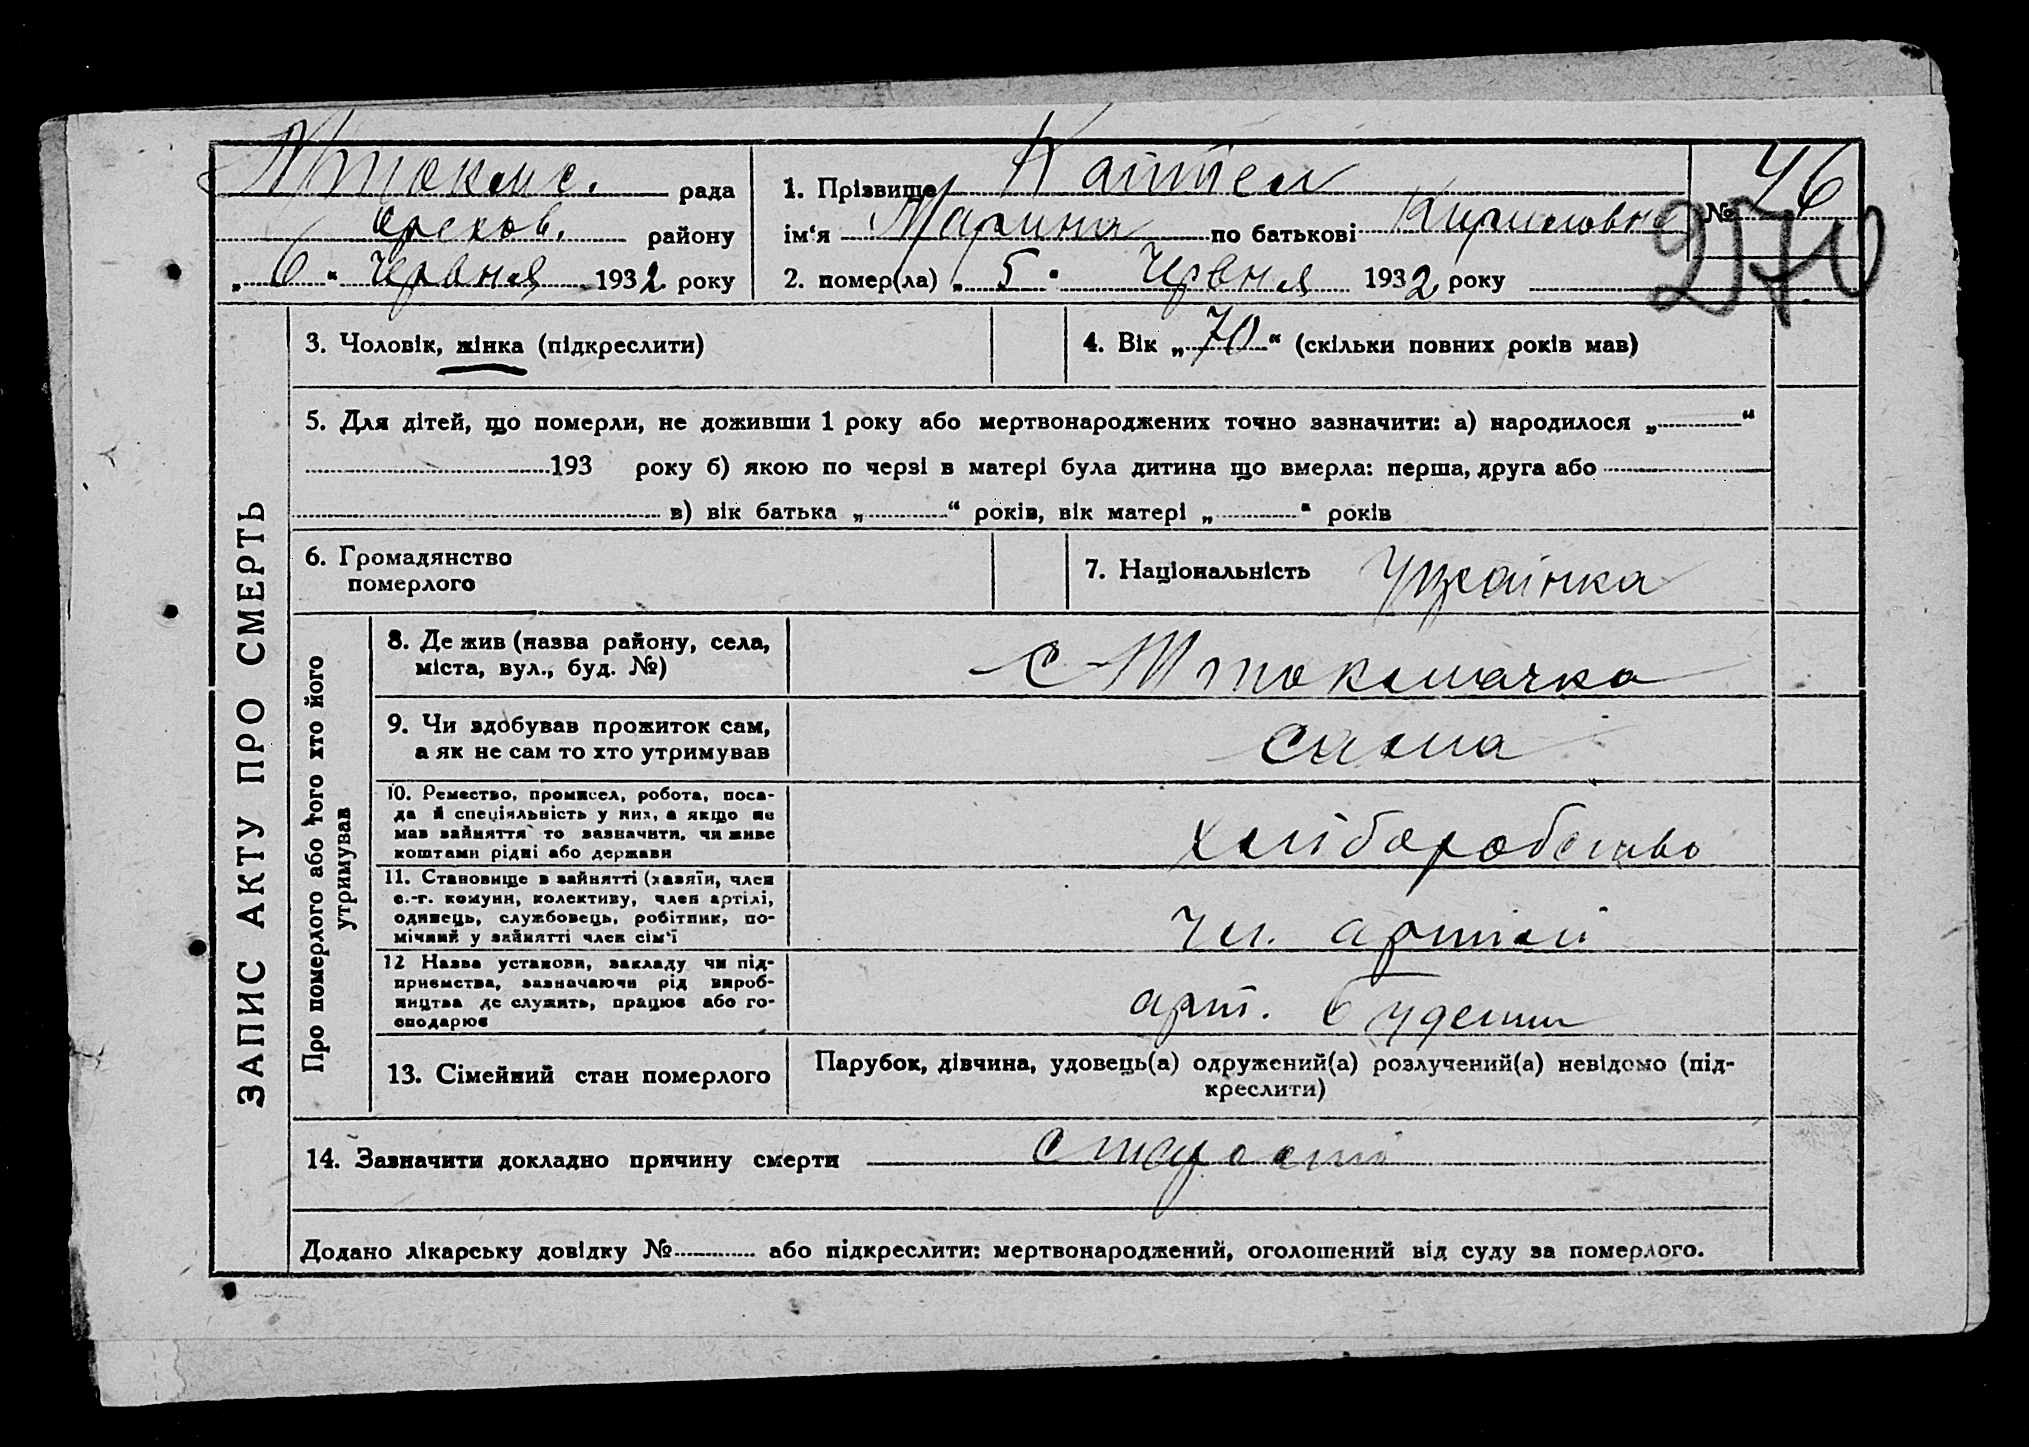 М токмс. рада
Орехов. району
„ 6 “ Червня 1932 року
1. Прізвище Каптел
ім‘я Марина по батькові Кириловна
2. помер(ла) „ 5 “ Червня 1932 року
№ 46
270
ЗАПИС АКТУ ПРО СМЕРТЬ
3. Чоловік, жінка (підкреслити)
4. Вік „ 70 “ (скільки повних років мав)
5. Для дітей, що померли, не доживши 1 року або мертвонароджених точно зазначити: а) народилося „ “
193 року б) якою по черзі в матері була дитина що вмерла: перша, друга або
в) вік батька „ “ років, вік матері „ “ років
6. Громадянство
померлого
7. Національність Українка
Про померлого або того хто його
утримував
8. Де жив (назва району, села,
міста, вул., буд. №)
с М токмачка
9. Чи здобував прожиток сам,
а як не сам то хто утримував
сама
10. Ремество, промисел, робота, поса-
да й спеціяльність у них, а якщо не
мав зайняття то зазначити, чи живе
коштами рідні або держави
хліборобство
11. Становище в зайнятті (хазяїн, член
с.-г. комуни, колективу, член артілі,
одинець, службовець, робітник, по-
мічний у зайнятті член сім‘ї
чл. артілі
12 Назва установи, закладу чи під-
приємства, зазначаючи рід вироб-
ництва де служить, працює або го-
сподарює
арт.
13. Сімейний стан померлого
Парубок, дівчина, удовець(а) одружений(а) розлучений(а) невідомо (під-
креслити)
14. Зазначити докладно причину смерти старості
Додано лікарську довідку № або підкреслити: мертвонароджений, оголошений від суду за померлого.